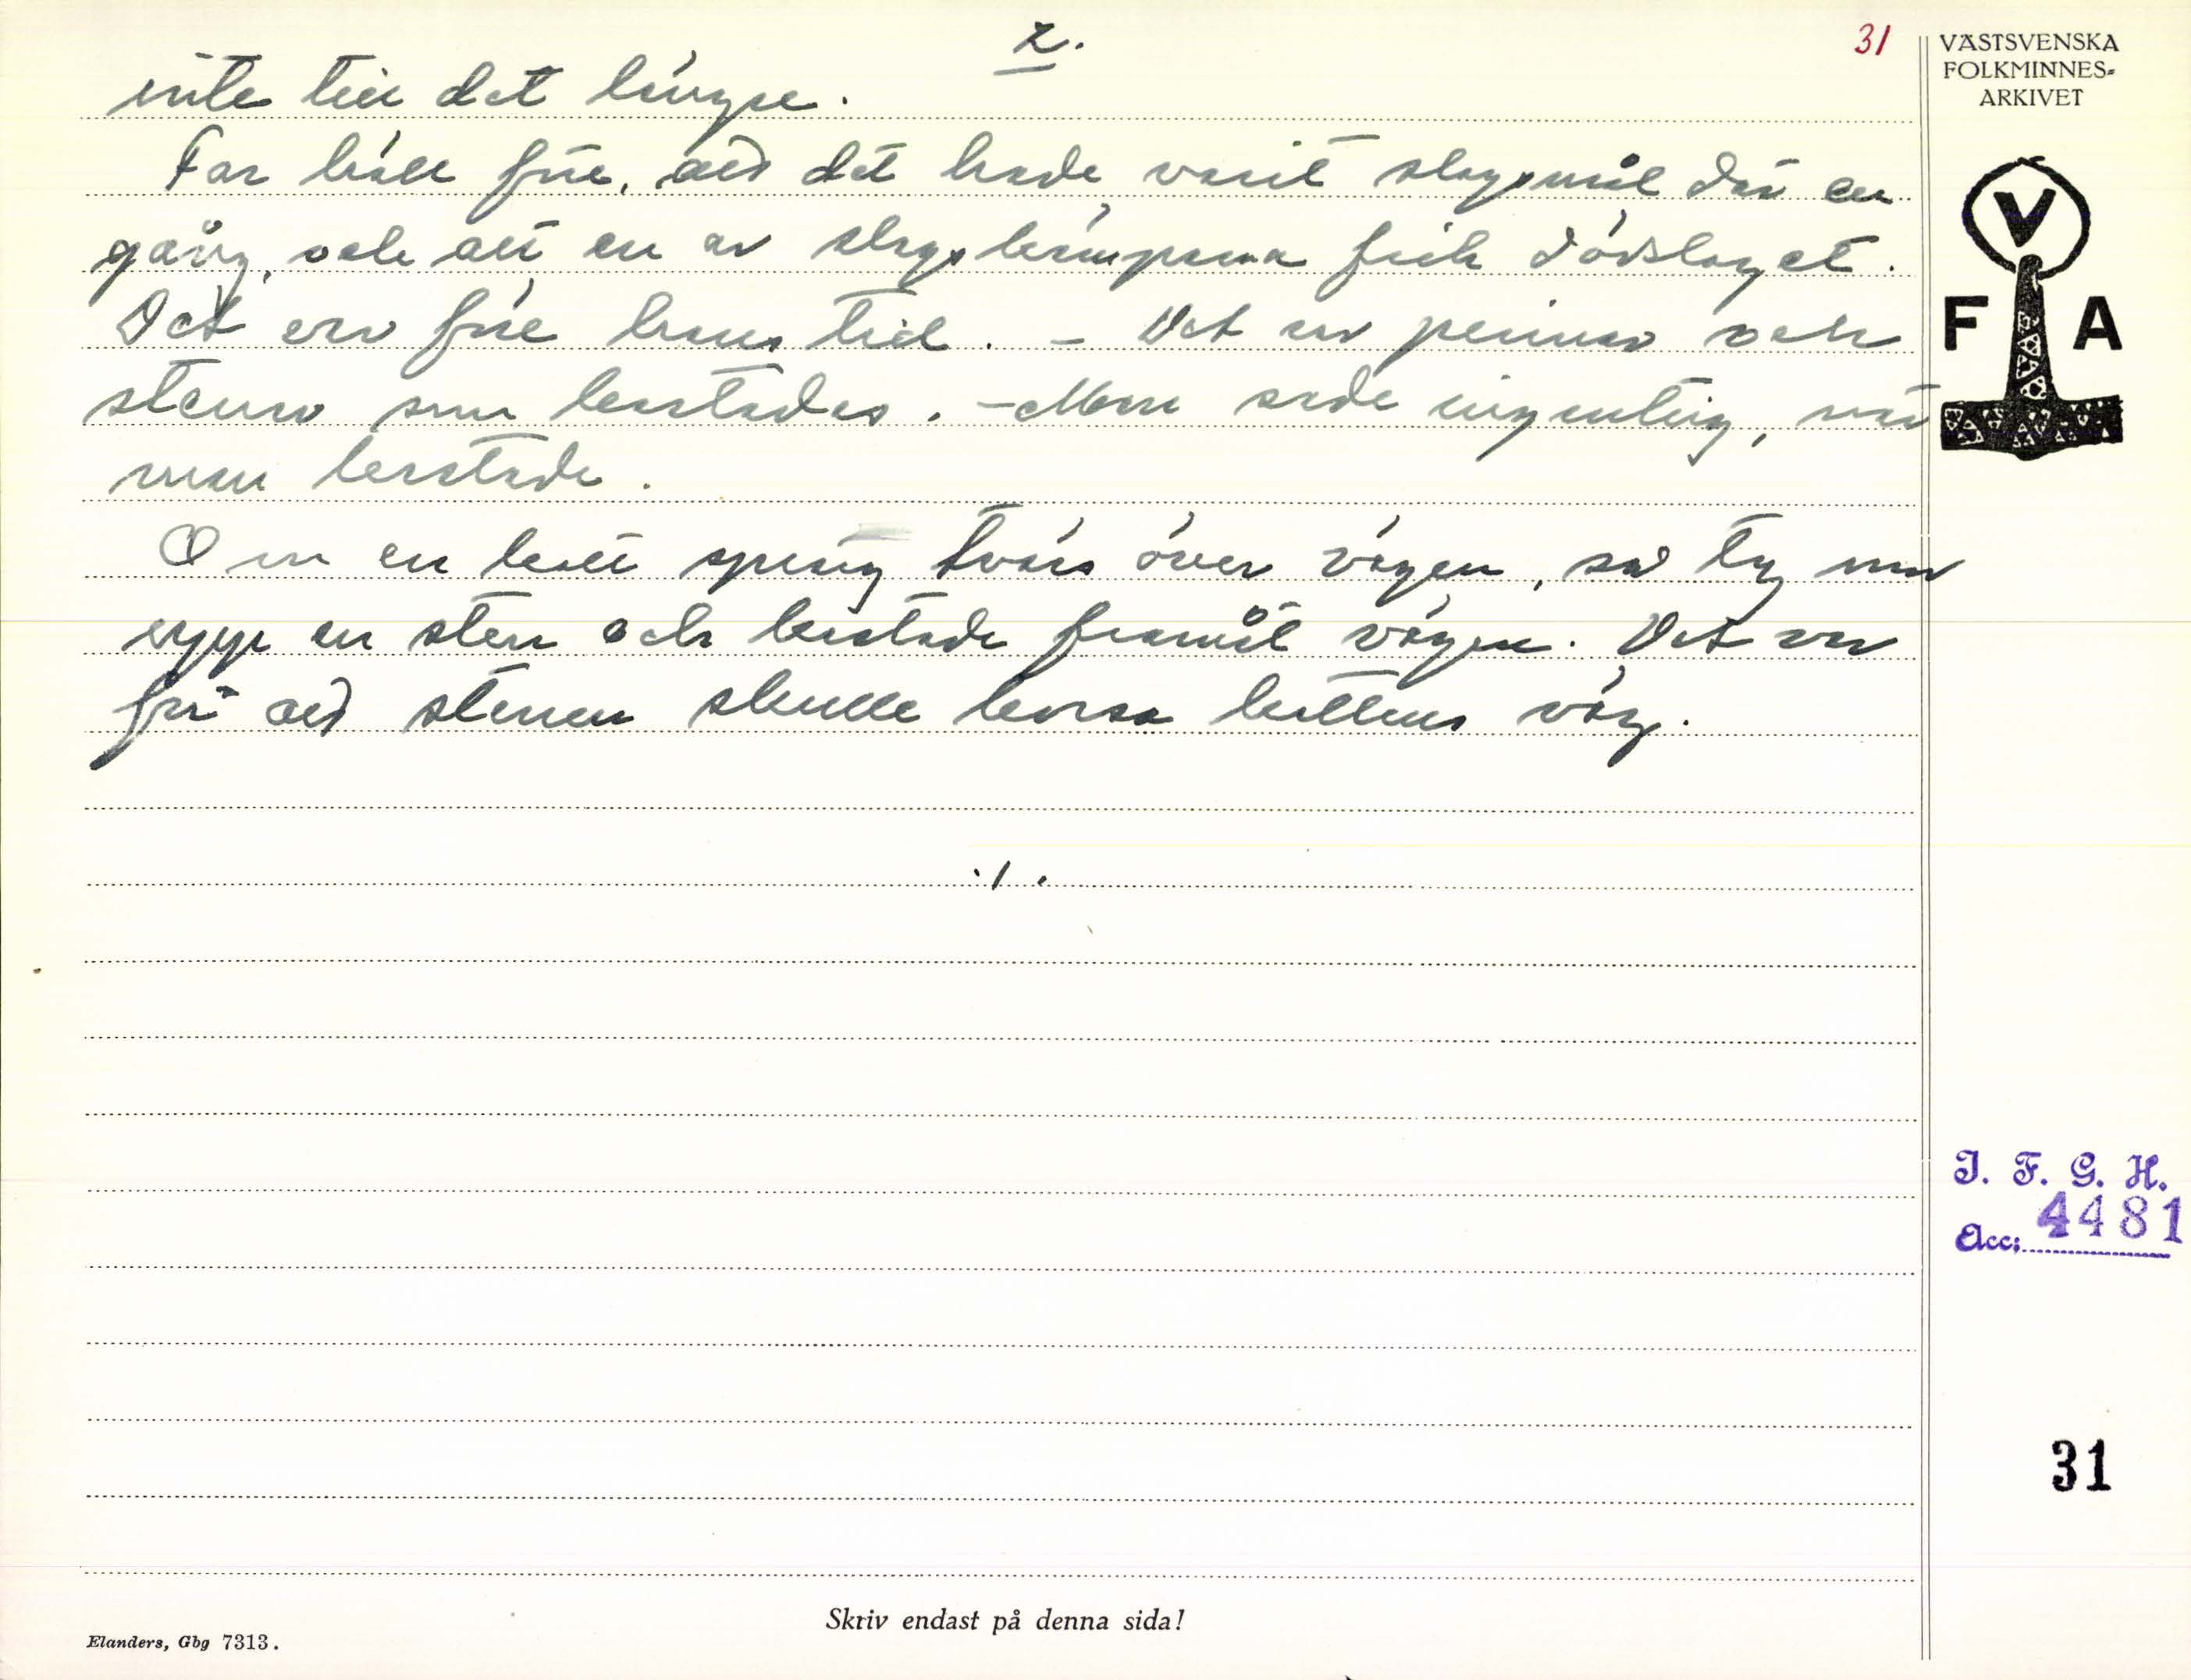 2.
31
inte till det längre.
Far höll före, att det hade varit slagsmål där en
gång, och att en av slagskämparna fick dödslaget.
Det var före hans tid. - Det var pinnar och
stenar som kastades. - Man sade ingenting, när
man kastade.
Om en katt sprang tvärs över vägen, så tog man
upp en sten och kastade framåt vägen. Det var
för att stenen skulle korsa kattens väg.
./.
VÄSTSVENSKA
FOLKMINNES-
ARKIVET
V
F A
I. F. G. H.
Acc: 4481
31
Skriv endast på denna sida!
Elanders, Gbg 7313.